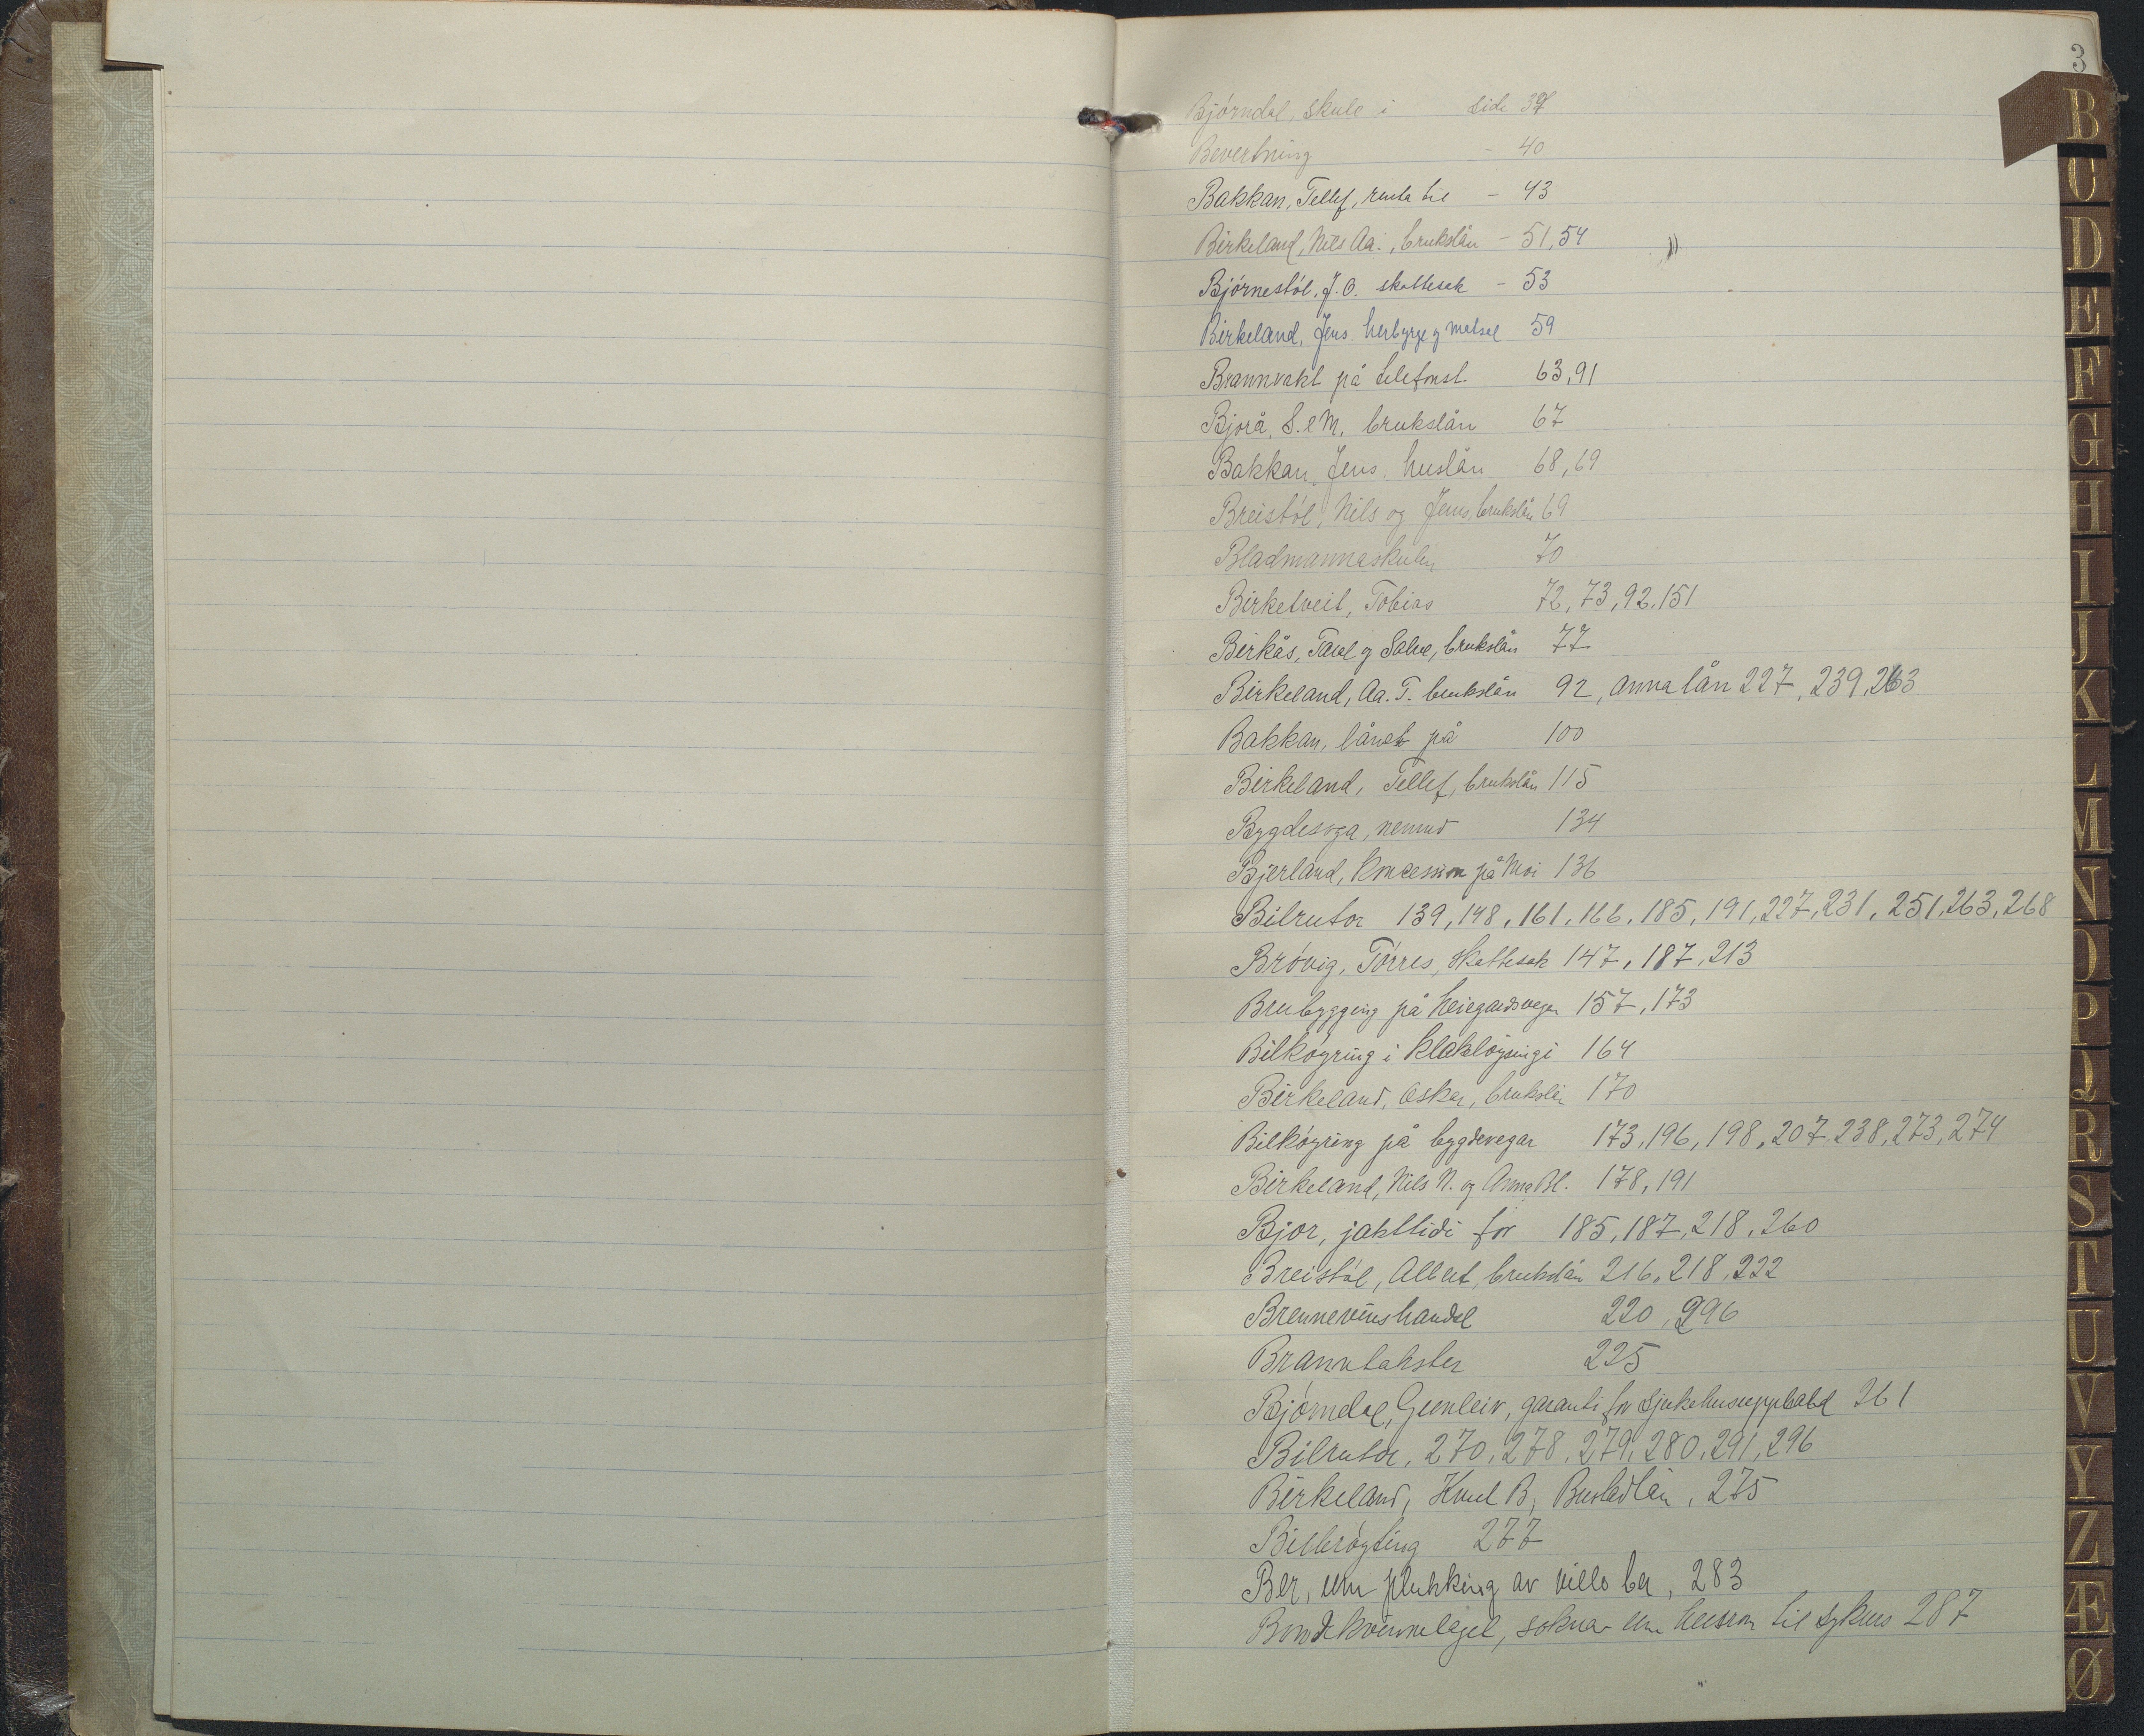 3
Bjórndal, skule i side 39
Bevertning - 40
Bakkan, Tellef, renta til - 43
Birkeland, Nils Aa., brukslån - 51, 54
Bjórnestól, J. O. skattesak - 53
Birkeland, Jens. herbyrge og matsal 59
Brannvakt på telefonst. 63, 91
Bjorå, S. e M. brukslån 67
Bakkan, Jens. huslån 68, 69
Breistól, Nils og Jens, brukslån 69
Bladmannaskulen 70
Birketveit, Tobias 72, 73, 92, 151
Birkås, Tarel og Salve, brukslån 77
Birkeland, Aa. T. brukslån 92, Anna lån 227, 239, 263
Bakkan, lånet på 100
Birkeland, Tellef, brukslån 115
Bygdesoga, nemnd 134
Bjerland, Koncession på Moi 136
Bilrutor 139, 148, 161, 166, 185, 191, 227, 231, 251, 263, 268
Bróvig, Tórres, skattesak 147, 187, 213
Brubygging på Heiegardsvegen 157, 173
Bilkóyring i kleklóysingi 164
Birkeland, Oskar, brukslån 170
Bilkóyring på bygdevegar 173, 196, 198, 207, 238, 273, 274
Birkeland, Nils N. og Anna Bl. 178, 191
Bjor, jakttidi for 185, 187, 218, 260
Breistól, Albert, brukslån 216, 218, 222
Brennevinshandel 220, 296
Branntakster 225
Bjórndal, Gunleiv, garanti for sjukehusupphald 261
Bilrutor, 270, 278, 279, 280, 291, 296
Birkeland, Knut B, Bustadlån, 275
Bilbróyting 277
Ber, um plukking av ville ber, 283
Bondekvinnelaget, soknar um husrom til sykurs 287
B
C
D
E
F
G
H
I
J
K
L
M
N
O
P
Q
R
S
T
U
V
Y
Z
Æ
Ø